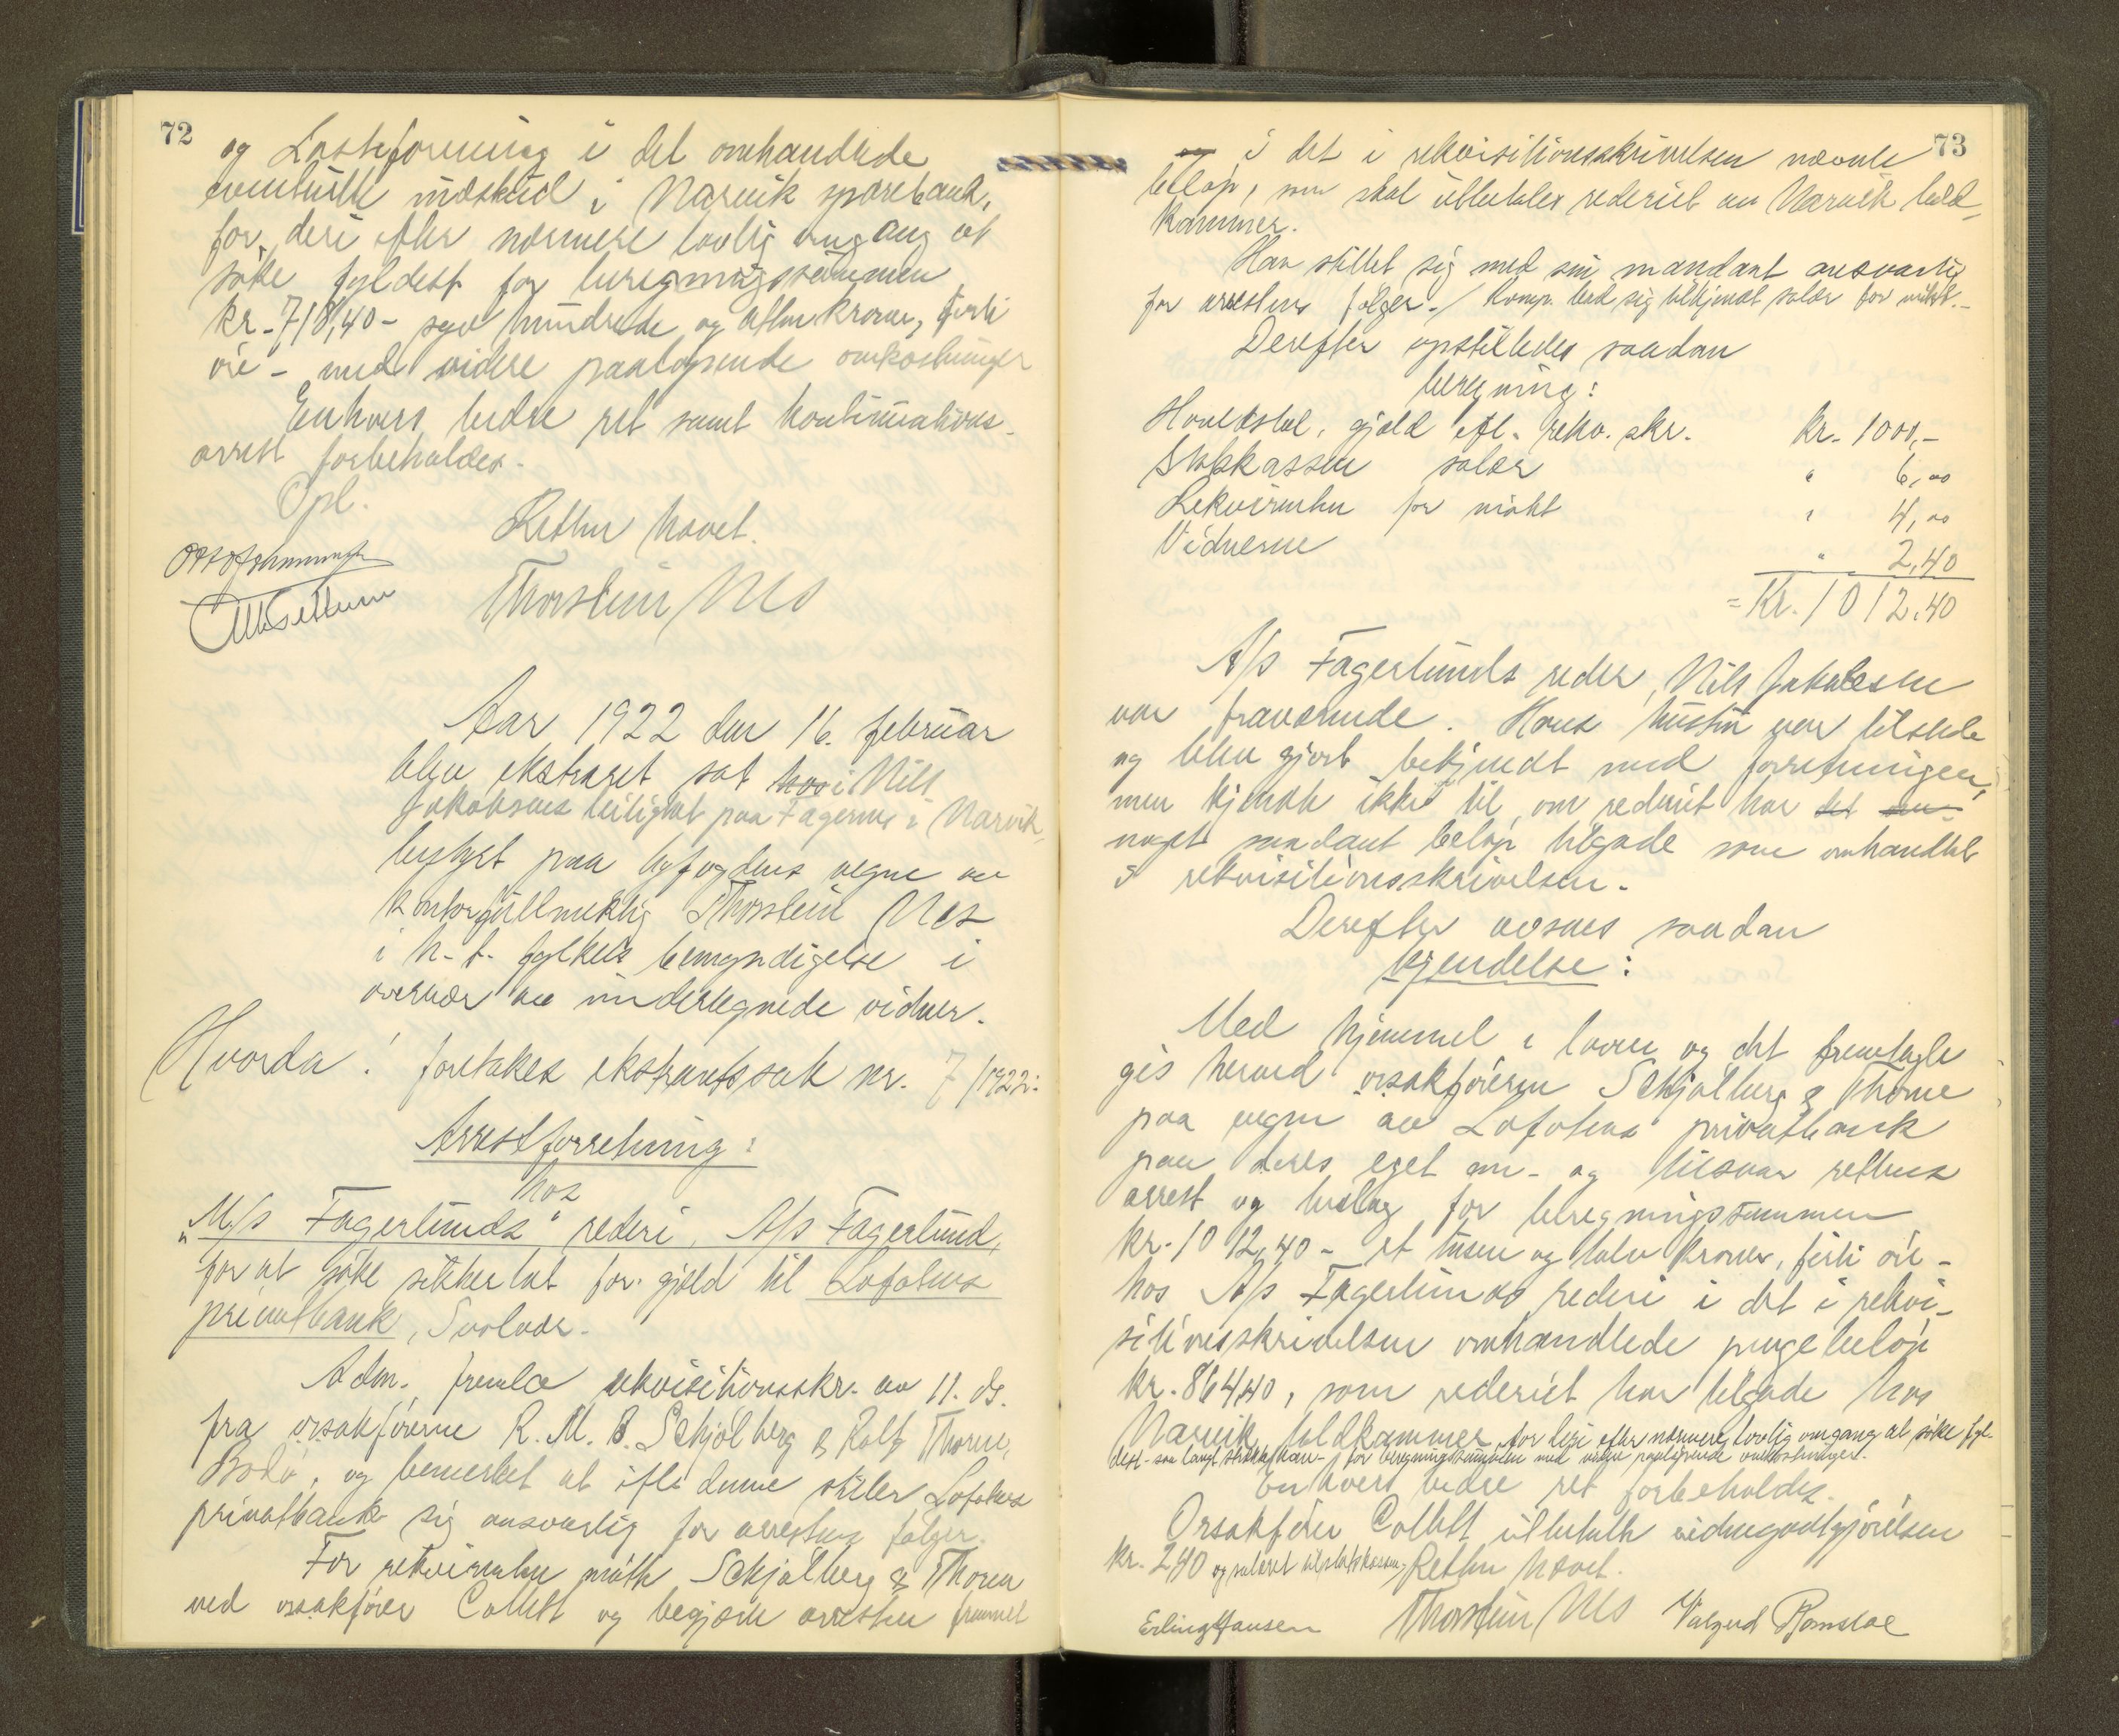 72
og Losseforening i det omhandlede
eventuelle indskud i Narvik sparebank,
for deri efter nærmere lovlig omgang at
søke fyldest for beregningssummen
kr. 718,40 – syv hundrede og atten kroner, førti
øre – med videre paaløpende omkostninger
Enhvers bedre ret samt kontinuations-
arrest forbeholdes.
Opl.
Retten hævet.
Thorstein Nes
Aar 1922 den 16. februar
blev ekstraret sat hos i Nils
Jakobsens leilighet paa Fagernes i Narvik,
bestyret paa byfogdens vegne av
kontorfuldmektig Thorstein Nes
i h.t. fylkets bemyndigelse i
overvær av undertegnede vidner.
Hvorda! foretokes ekstraretssak nr. 7/1922:
Arrestforretning:
hos
"M/s Fagerlunds" rederi, A/s Fagerlund,
for at søke sikkerhet for gjæld til Lofotens
privatbank, Svolvær.
Adm. fremla rekvisitionsskr. av 11. ds.
fra orsakførerne R. M. B. Schjølberg & Rolf Thorne,
Bodø, og bemerket at ifl. denne stiler Lofotens
privatbank sig ansvarlig for arrestens følger.
For rekvirenten møtte Schjølberg & Thorne
ved orsakfører Collett og begjærte arresten fremmet
73
i det i rekvisitionsskrivelsen nævnte
beløp, som skal utbetales rederiet av Narvik told-
kammer.
Han stillet sig med sin mandant ansvarlig
for arrestens følger. / Komp. bad sig tilkjendt salær for møtet. –
Derefter opstilledes saadan
beregning:
Hovedstol, gjæld ifl. rekv. skr. kr. 1000,–
Statskassen salær " 6,00
Rekvirenten for møtet " 4,00
Vidnerne " 2,40
= Kr. 1012,40
A/s Fagerlunds reder, Nils Jakobsen
var fraværende. Hans hustru var tilstede
og blev gjort bekjendt med forretningen,
men kjendte ikke til, om rederiet har det
noget saadant beløp tilgode som omhandlet
i rekvisitionsskrivelsen.
Derefter avsaes saadan
kjendelse:
Med hjemmel i loven og det fremlagte
gis herved orsakførerne Schjølberg & Thorne
paa vegne av Lofotens privatbank
paa deres eget an- og tilsvar rettens
arrest og beslag for beregningssummen
kr. 1012,40 – et tusen og tolv kroner, førti øre –
hos A/s Fagerlunds rederi i det i rekvi-
sitionsskrivelsen omhandlede pengebeløp
kr. 864,40, som rederiet har tilgode hos
Narvik toldkammer, for deri efter nærmere lovlig omgang at søke fyl-
dest – saa langt strække kan – for beregningssummen med videre paaløpende omkostninger.
Enhvers bedre ret forbeholdes.
Orsakfører Collett utbetalte vidnegodtgjørelsen
kr. 2,40 og salæret til statskassen. Retten hævet.
Erling Hansen Thorstein Nes